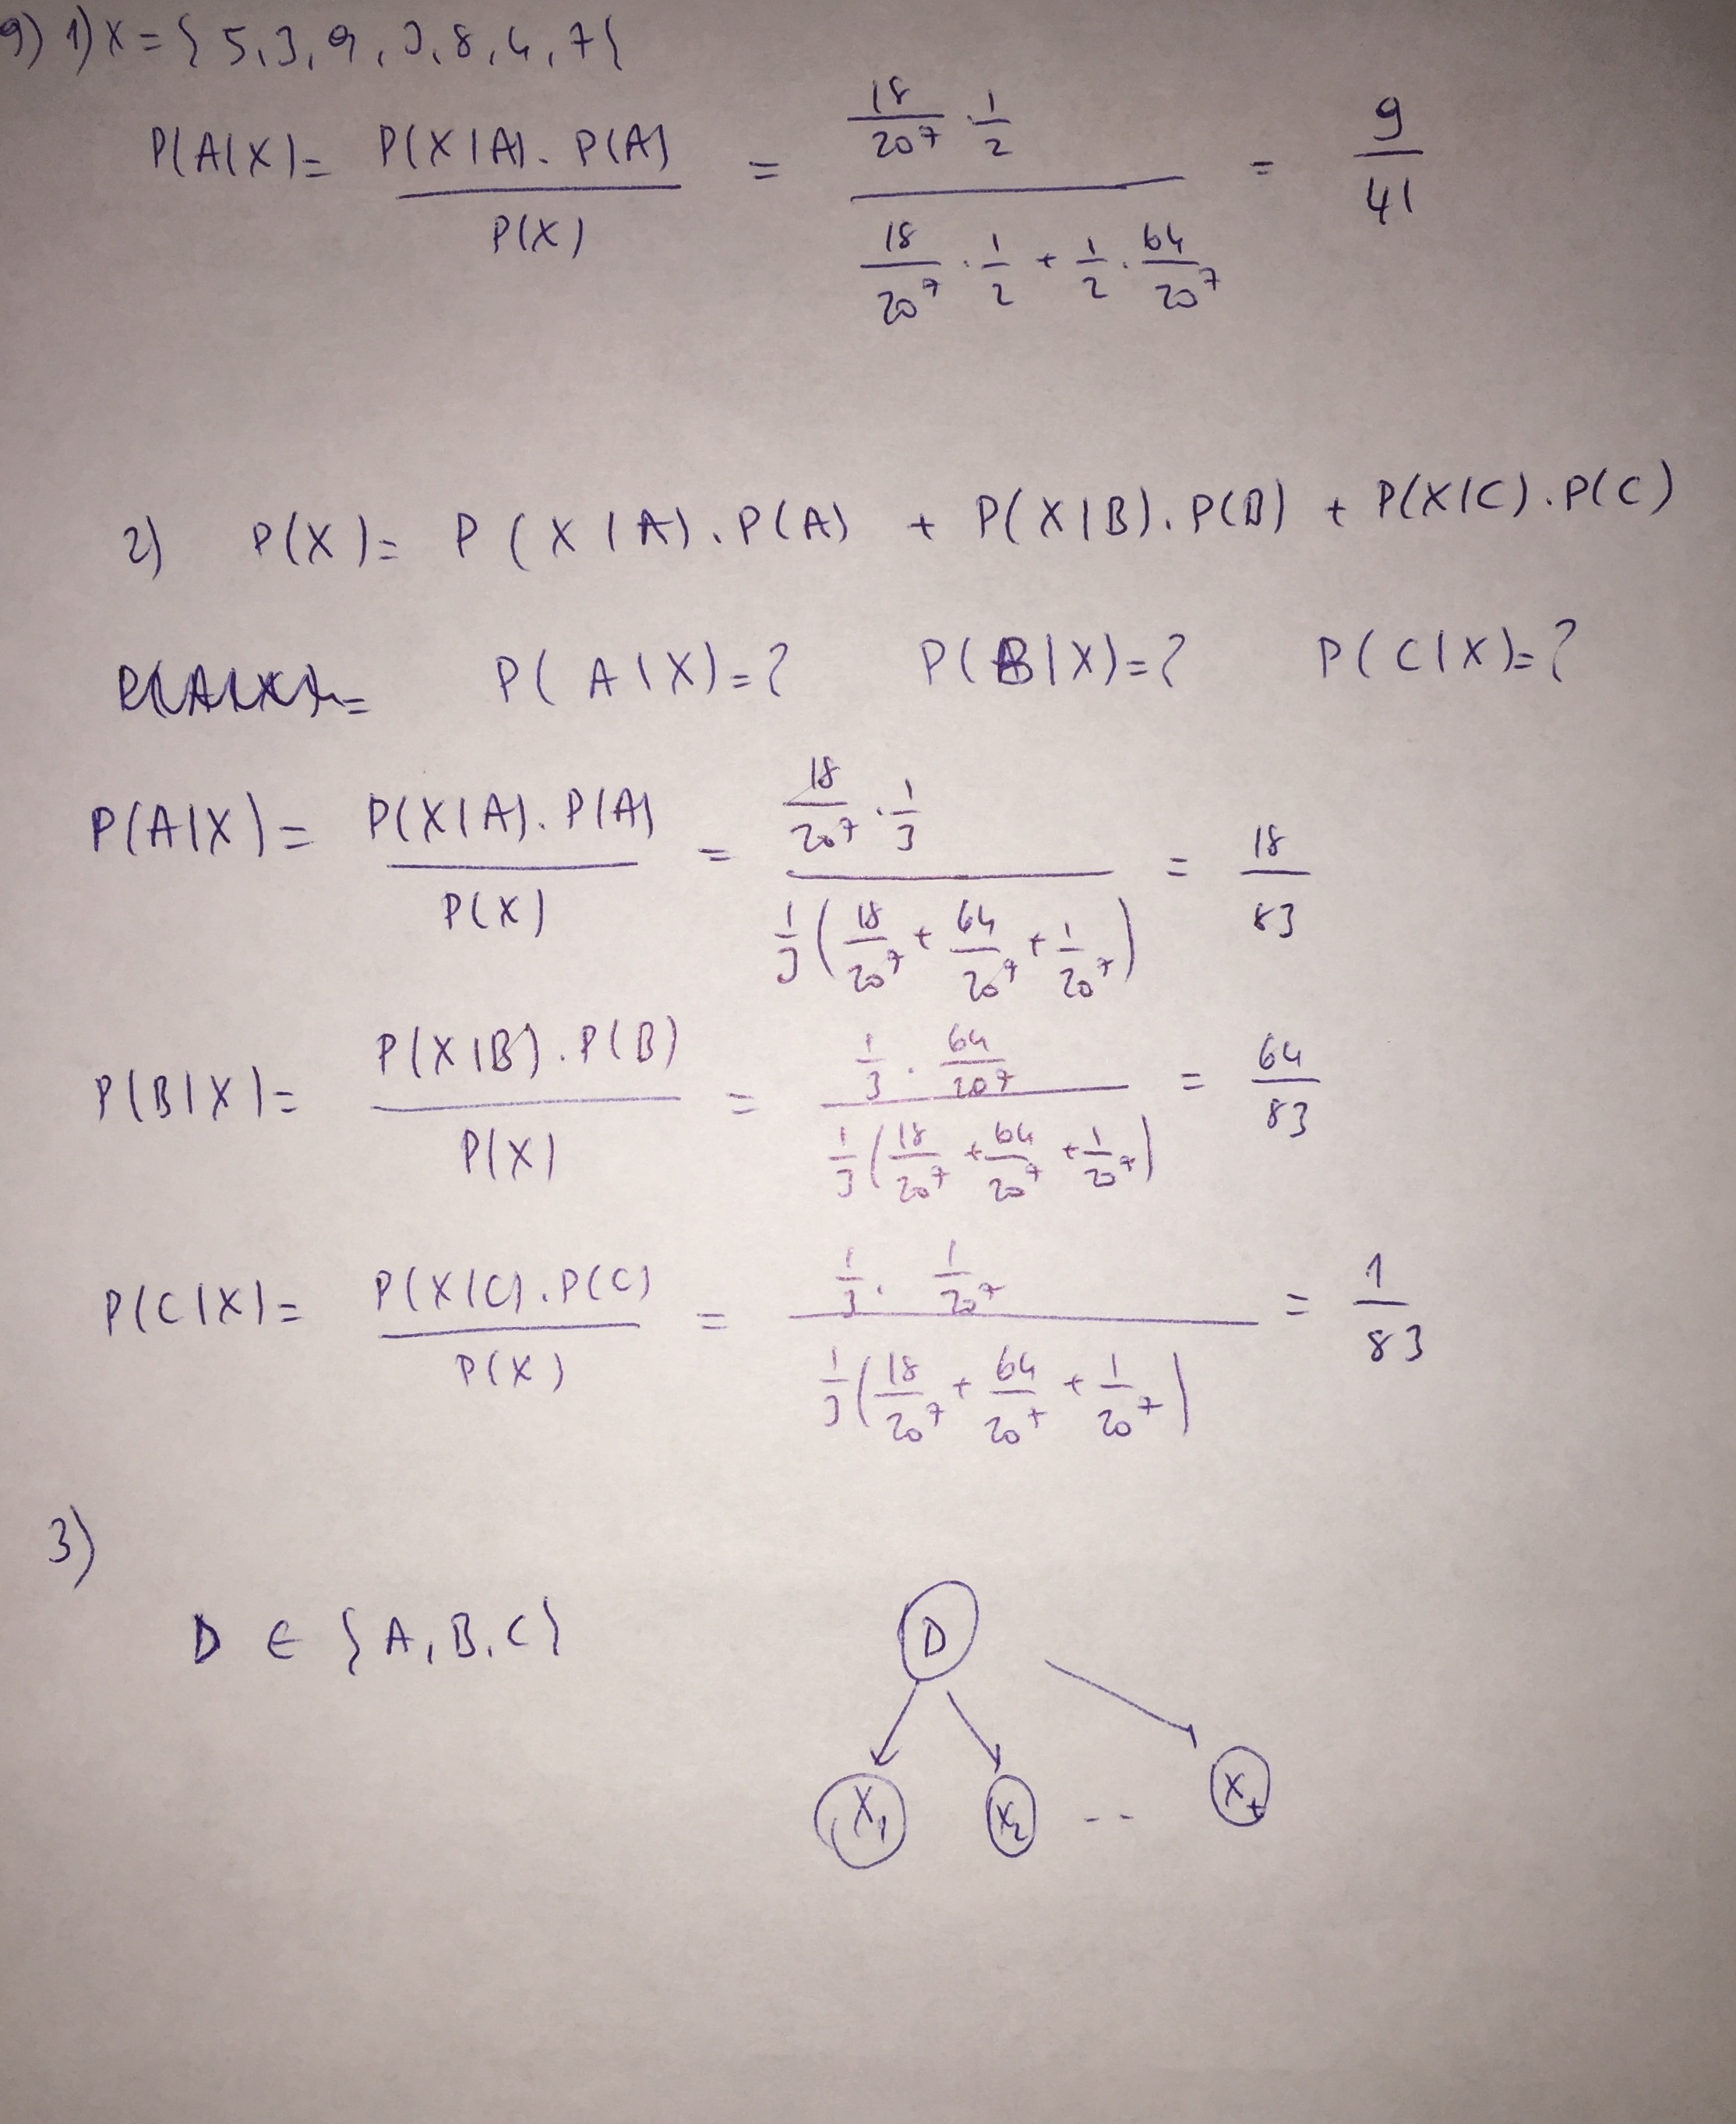 9) 1) X = { 5, 3, 9, 3, 8, 4, 7 }
P(A|X) = P(X|A) . P(A) / P(X) = 18/20^7 . 1/2 / 18/20^7 . 1/2 + 1/2 . 64/20^7 = 9/41
2) P(X) = P(X|A) . P(A) + P(X|B) . P(B) + P(X|C) . P(C)
P(A|X) = ? P(B|X) = ? P(C|X) = ?
P(A|X) = P(X|A) . P(A) / P(X) = 18/20^7 . 1/3 / 1/3 ( 18/20^7 + 64/20^7 + 1/20^7 ) = 18/83
P(B|X) = P(X|B) . P(B) / P(X) = 1/3 . 64/20^7 / 1/3 ( 18/20^7 + 64/20^7 + 1/20^7 ) = 64/83
P(C|X) = P(X|C) . P(C) / P(X) = 1/3 . 1/20^7 / 1/3 ( 18/20^7 + 64/20^7 + 1/20^7 ) = 1/83
3)
D ∈ { A, B, C }
D
X1 X2 -- X7